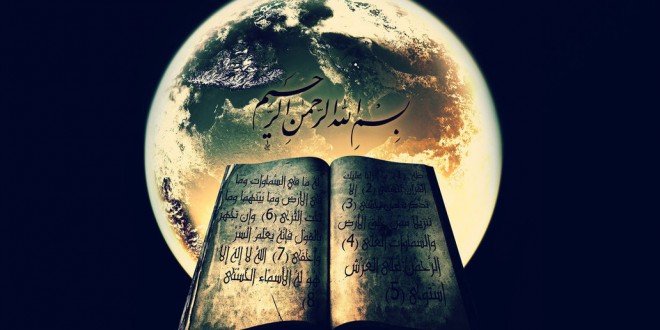 بِسْمِ اللهِ الرَّحْمنِ الرَّحِيمِ
عليك
(2) إلا
تذكرة لمن يخشى (3)
تنزيلا ممن خلق الأرض
والسماوات العلى (4)
الرحمن على العرش
استوى (5)
له ما في السماوات وما
في الأرض وما بينهما وما
تحت الثرى (6) وإن تجهر
بالقول فإنه يعلم السر
وأخفى (7) الله لا إله إلا
هو له الأسماء الحسنى
(8)